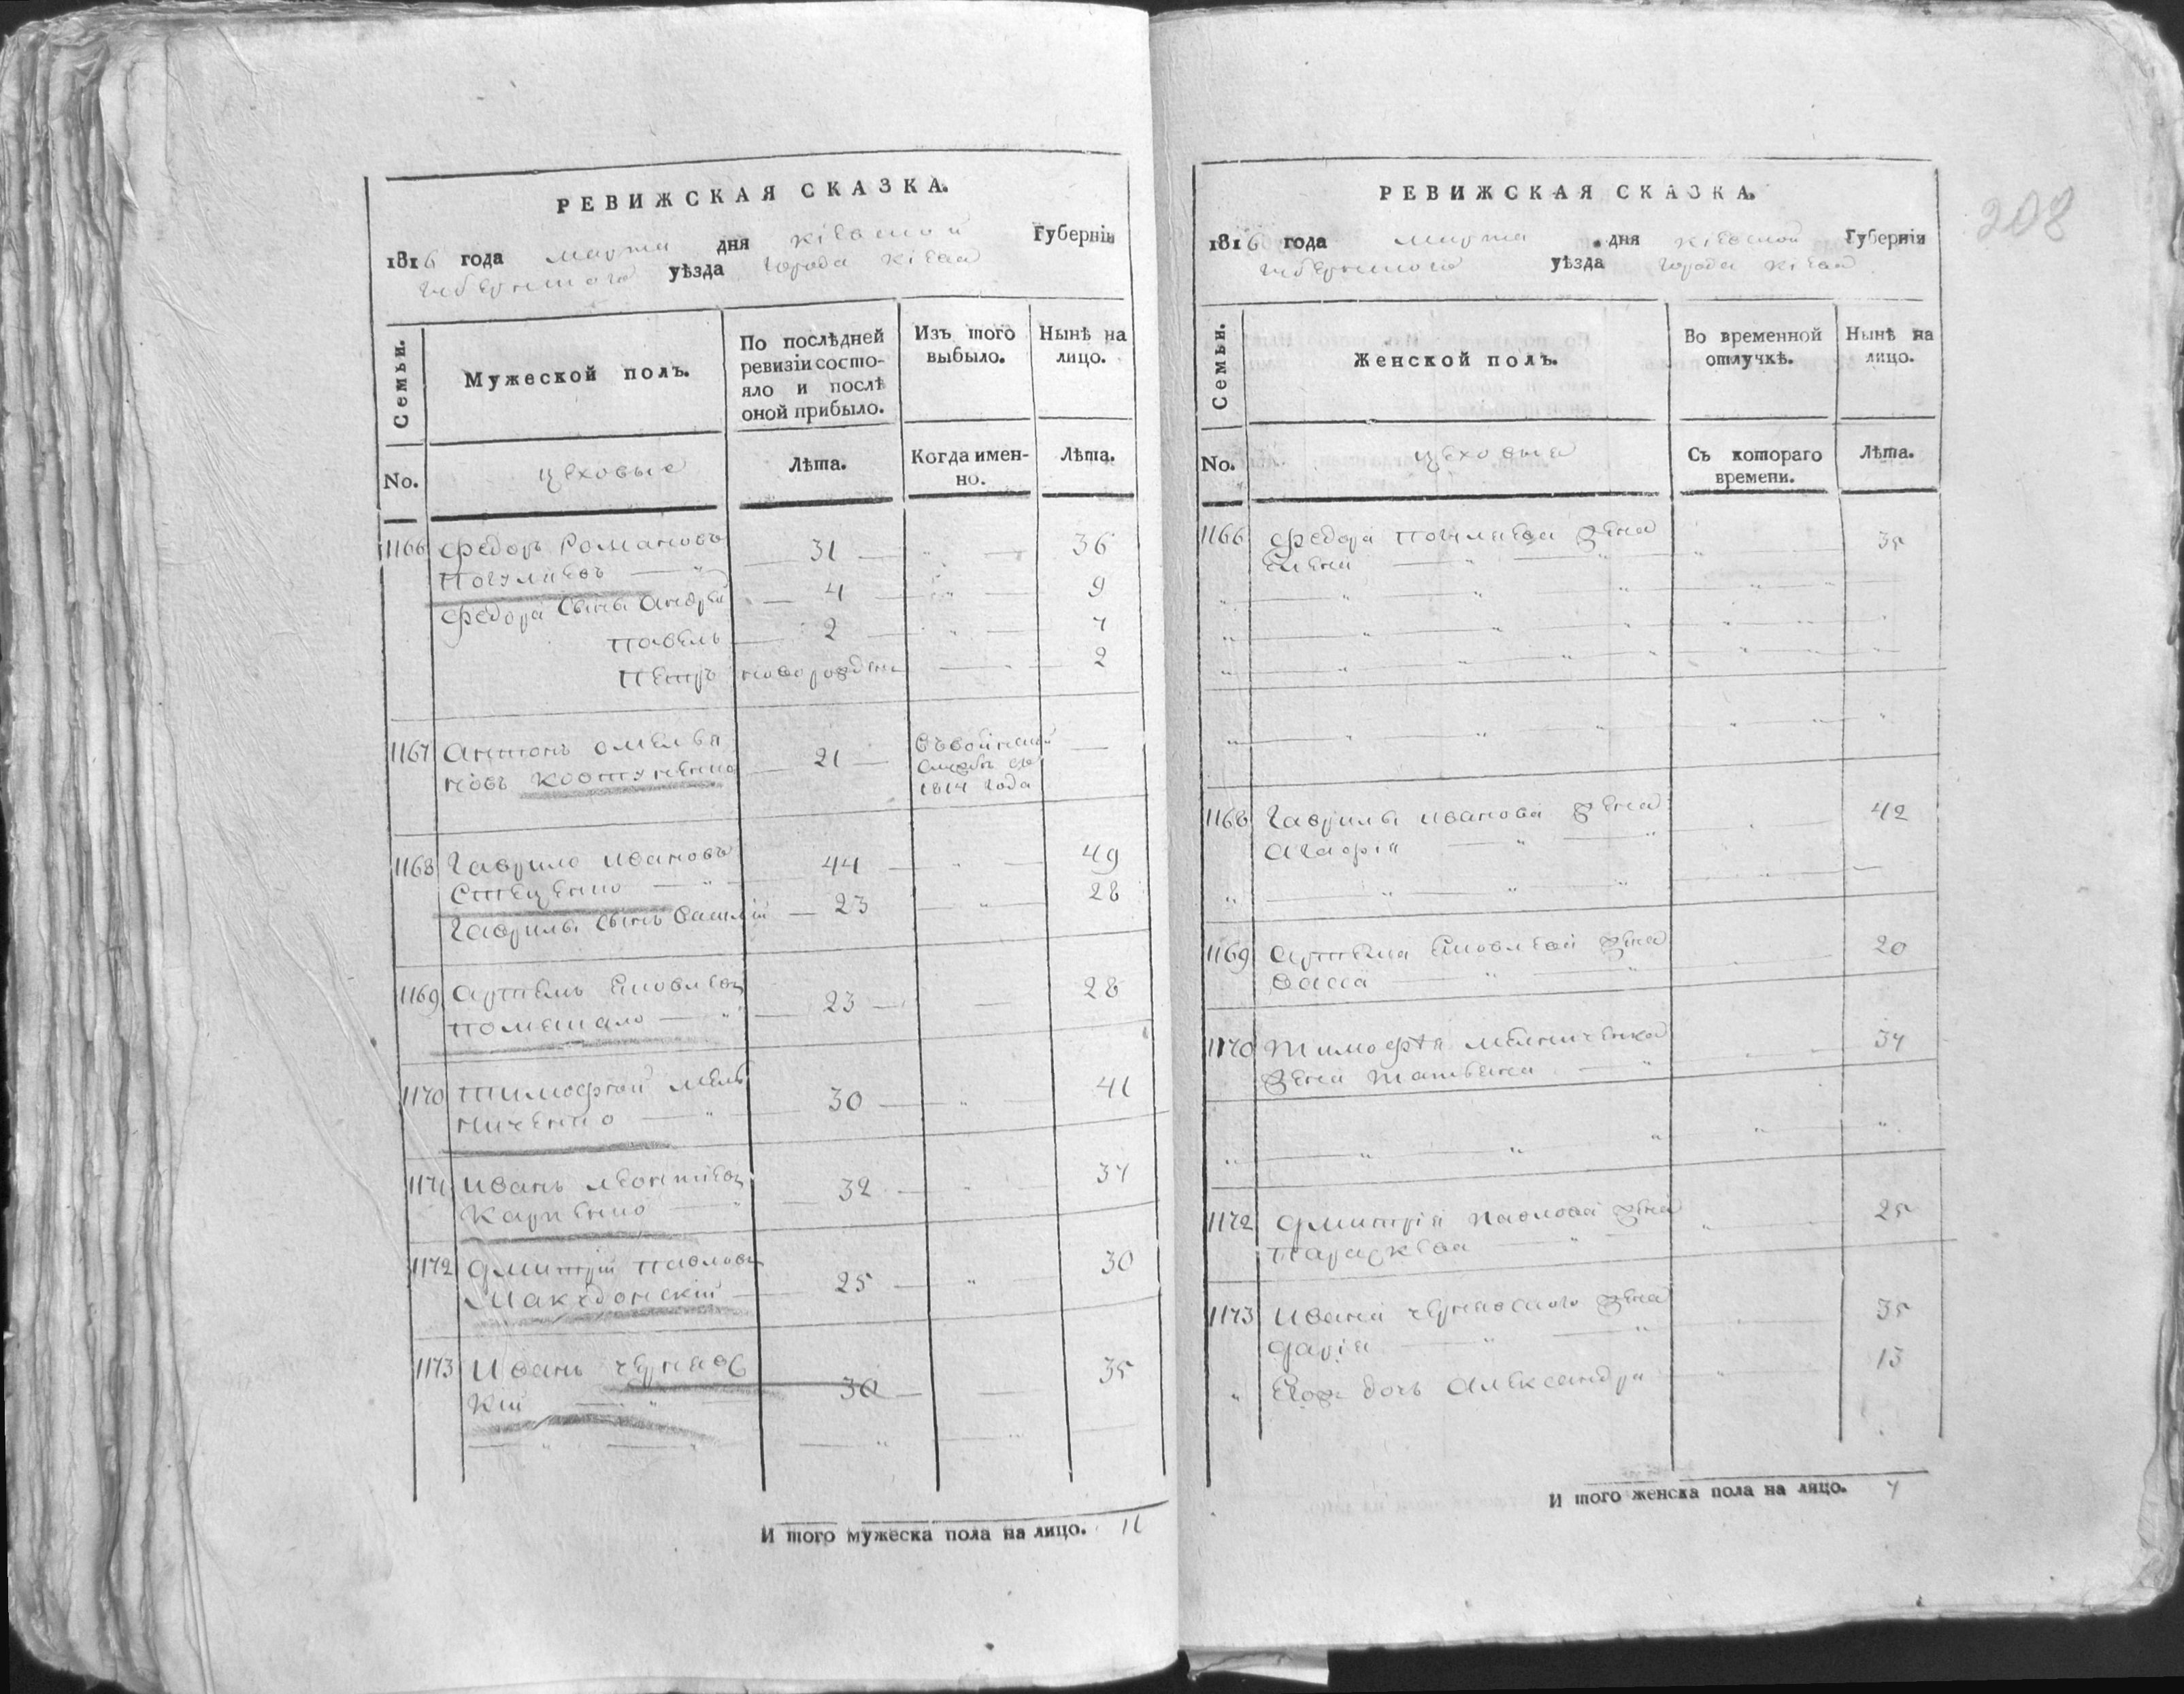 РЕВИЖСКАЯ СКАЗКА.
1816 года марта дня кіевской Губерніи
уѣзда города кіева
Семьи.
Мужеской полъ.
По послѣдней ревизіи состояло и послѣ оной прибыло.
Изъ того выбыло.
Нынѣ на лицо.
No.
цеховые
Лѣта.
Когда именно.
Лѣта.
1166 Федоръ Романовъ 31 36
Федора сынъ Андрей 4 9
Павелъ 2 7
Петръ новорожден 2
1167 Антонъ Омелья
новъ 21
1814 года
1168 Гаврило Ивановъ 44 49
Стеценко
Гаврилы сынъ Василій 23 28
1169 Артемъ Яковлевъ 23 28
1170 Тимофѣй Мель 30 41
ниченко
1171 Иванъ Леонтіевъ 32 37
Карпенко
1172 Дмитрій Павловъ 25 30
Македонскій
1173 Иванъ Чернявс 30 35
кій
И того мужеска пола на лицо. 11
РЕВИЖСКАЯ СКАЗКА.
208
1816 года марта дня кіевской Губерніи
уѣзда города кіева
Семьи.
Женской полъ.
Во временной отлучкѣ.
Нынѣ на лицо.
No.
цеховыя
Съ котораго времени.
Лѣта.
1166 Федора жена 35
1168 Гаврилы Иванова жена 42
Агафія
1169 Артема Яковлева жена 20
Васса
1170 Тимофѣя Мельниченка 37
жена Татьяна
1172 Дмитрія Павлова жена 25
Параскева
1173 Ивана Чернявского жена 35
Дарія
Егож дочь Александра 13
И того женска пола на лицо. 7